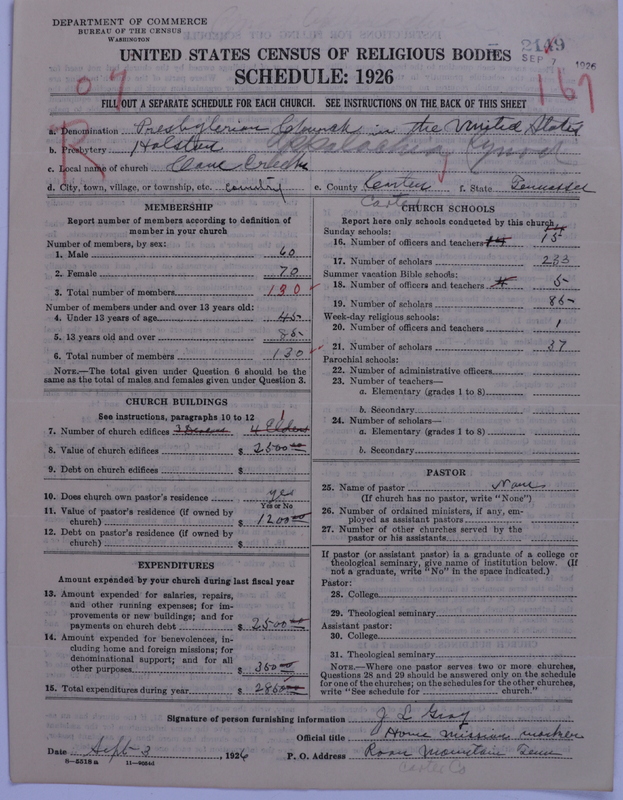 DEPARTMENT OF COMMERCE
BUREAU OF THE CENSUS
WASHINGTON
UNITED STATES CENSUS OF RELIGIOUS BODIES
SCHEDULE: 1926
SEP 7 1926
167
FILL OUT A SEPARATE SCHEDULE FOR EACH CHURCH. SEE INSTRUCTIONS ON THE BACK OF THIS SHEET
a. Denomination Presbyterian Church in the United States
b. Presbytery Holston Appalachia Synod
c. Local name of church Cane Creek
d. City, town, village, or township, etc. country e. County Carter f. State Tennessee
Carter
MEMBERSHIP
Report number of members according to definition of member in your church
Number of members, by sex:
1. Male 60
2. Female 70
3. Total number of members 130
Number of members under and over 13 years old:
4. Under 13 years of age 45
5. 13 years old and over 85
6. Total number of members 130
NOTE.—The total given under Question 6 should be
same as the total of males and females given under Question 3.
CHURCH BUILDINGS
See instructions, paragraphs 10 to 12
7. Number of church edifices 1
8. Value of church edifices $ 2500.00
9. Debt on church edifices $
10. Does church own pastor's residence yes
Yes or No
11. Value of pastor's residence (if owned by
church) $ 1200.00
12. Debt on pastor's residence (if owned by
church) $
EXPENDITURES
Amount expended by your church during last fiscal year
13. Amount expended for salaries, repairs,
and other running expenses; for im-
provements or new buildings; and for
payments on church debt $ 2500.00
14. Amount expended for benevolences, in-
cluding home and foreign missions; for
denominational support; and for all
other purposes $ 350.00
15. Total expenditures during year $ 2850.00
CHURCH SCHOOLS
Report here only schools conducted by this church
Sunday schools:
16. Number of officers and teachers 15
17. Number of scholars 233
Summer vacation Bible schools:
18. Number of officers and teachers 5
19. Number of scholars 85
Week-day religious schools:
20. Number of officers and teachers 1
21. Number of scholars 37
Parochial schools:
22. Number of administrative officers
23. Number of teachers—
a. Elementary (grades 1 to 8)
b. Secondary
24. Number of scholars—
a. Elementary (grades 1 to 8)
b. Secondary
PASTOR
25. Name of pastor None
(If church has no pastor, write "None")
26. Number of ordained ministers, if any, em-
ployed as assistant pastors
27. Number of other churches served by the
pastor or his assistants
If pastor (or assistant pastor) is a graduate of a college or
theological seminary, give name of institution below. (If
not a graduate, write "No" in the space indicated.)
Pastor:
28. College
29. Theological seminary
Assistant pastor:
30. College
31. Theological seminary
NOTE.—Where one pastor serves two or more churches,
Questions 28 and 29 should be answered only on the schedule
for one of the churches; on the schedules for the other churches,
write "See schedule for church."
Signature of person furnishing information J L Gray
Official title Home Mission worker
Date Sept 3, 1926 P. O. Address Roan Mountain Tenn
8—5518a 11—9024d
Carter Co